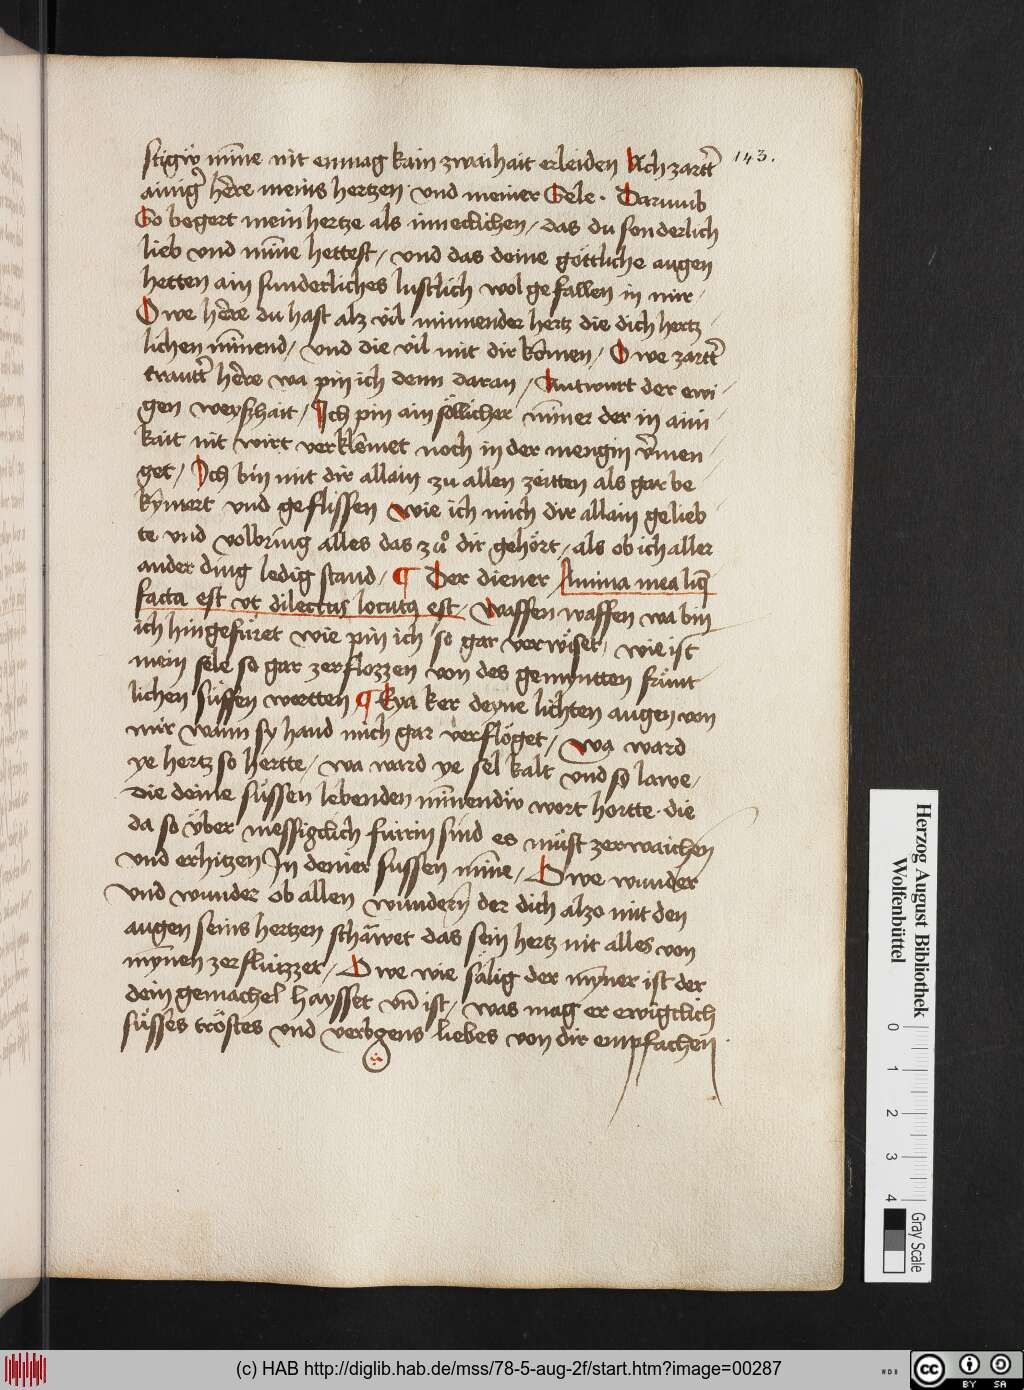 stigiv mīne nit enmag kain zwaihait erleiden Ach zartr̄
143.
ainiger h̄ere meins hertzen vnd meiner Sele · Darumb
So begert mein hertze als inneclichen / das du sonderlich
lieb vnd mīne hettest / vnd das deine göttliche augen
hetten ain sunderliches lustlich wolgefallen in mir /
O we h̄ere du hast alz vil minnender hertz die dich hertz /
lichen mīnend / vnd die vil mit dir kōmen / O we zartr̄
trautr̄ h̄ere wa pin ich denn daran / Antwurt der ewi /
gen weyshait / Ich pin ain söllicher mīner der in aini /
kait nit wirt verklēmet noch in der mengin v̄men /
get / Ich bin mit dir allain zu allen zeitten als gar be /
kȳmert vnd geflissen wie ich mich dir allain gelieb
te vnd volbring alles das zů dir gehört / als ob ich aller
ander ding ledig stand / ¶ Der diener Anima mea liq̄
facta est vt dilectus locutꝰ est / Waffen waffen wa bin
ich hingefüret wie pin ich so gar verwiset / wie ist
mein sele so gar zerflozzen von des gemintten fräint
lichen süssen wortten ¶ Eya ker deyne lichten augen von
mir wann sy hand mich gar verflöget / Wa ward
ye hertz so hertte / wa ward ye sel kalt vnd so lawe /
die deine süssen lebenden mīnendiv wort hortte · die
da so über messigclich fürin sind es müst zerwaichen
vnd erhitzen In deiner sussen mīne / O we wunder
vnd wunder ob allen wundern der dich alzo mit den
augen seins hertzen schäwet das sein hertz nit alles von
mȳnen zerfluizzet / O we wie sälig der mȳner ist der
dein gemachel haysset vn̄ ist / was mag er ewigclich
süsses tröstes vnd verbgens liebes von dir empfachen ·
Herzog August Bibliothek
Wolfenbüttel
0 1 2 3 4
Gray Scale
(c) HAB http://diglib.hab.de/mss/78-5-aug-2f/start.htm?image=00287
WDB
cc BY SA